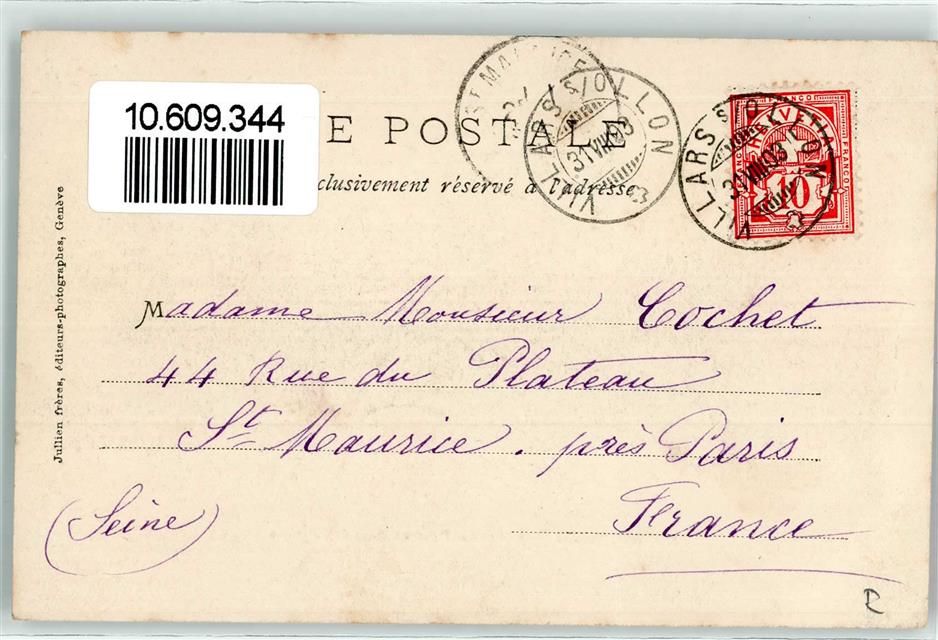 10.609.344
E POSTALE
clusivement réservé à l'adresse.
ST MAURICE
VILLARS S/OLLON
31 VIII 03
VILLARS S/OLLON
31 VIII 03
FRANCO
HELVETIA
FRANCO
10
Jullien frères, éditeurs-photographes, Genève
Madame Monsieur Cochet
44 Rue du Plateau
St Maurice. près Paris
(Seine)
France
R